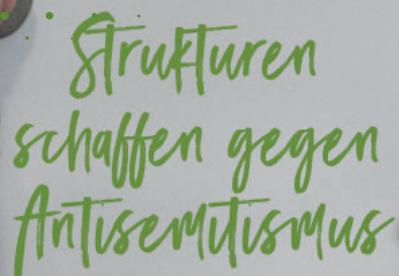 Strukturen
schaffen gegen
Antisemitismus